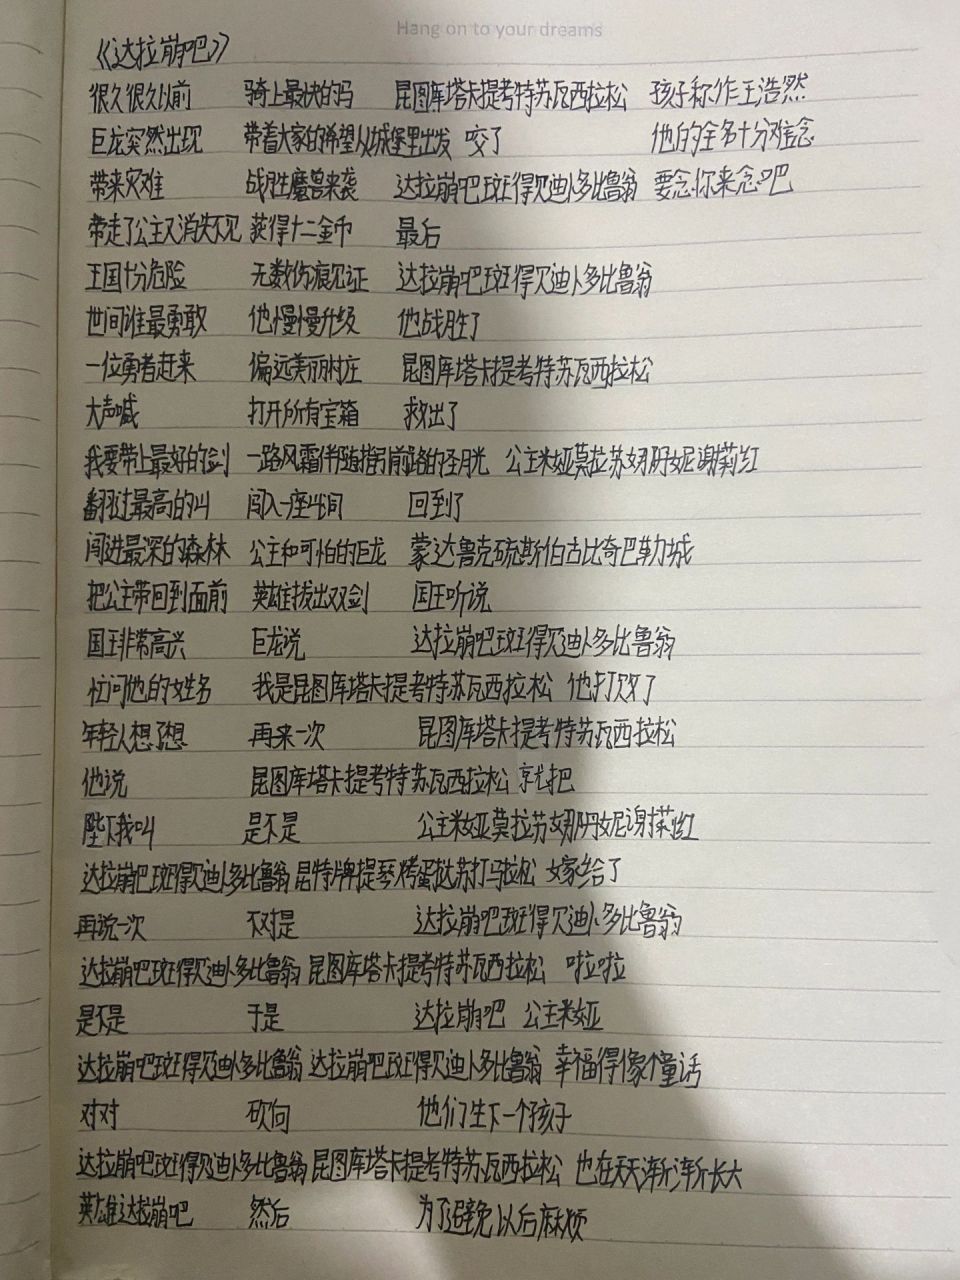 Hang on to your dreams
《达拉崩吧》
很久很久以前 骑上最快的马 昆图库塔卡提考特苏瓦西拉松 孩子称作王浩然
巨龙突然出现 带着大家的希望从城堡里出发 咬了 他的全名十分难念
带来灾难 战胜魔兽来袭 达拉崩吧斑得贝迪卜多比鲁翁 要念你来念吧
带走了公主又消失不见 获得十二金币 最后
王国十分危险 无数伤痕见证 达拉崩吧斑得贝迪卜多比鲁翁
世间谁最勇敢 他慢慢升级 他战胜了
一位勇者赶来 偏远美丽村庄 昆图库塔卡提考特苏瓦西拉松
大声喊 打开所有宝箱 救出了
我要带上最好的剑 一路风霜伴随指引前路的圣月光 公主米娅莫拉苏娜丹妮谢莉红
翻过最高的山 闯入一座山洞 回到了
闯进最深的森林 公主和可怕的巨龙 蒙达鲁克硫斯伯古比奇巴勒城
把公主带回到面前 英雄拔出双剑 国王听说
国王非常高兴 巨龙说 达拉崩吧斑得贝迪卜多比鲁翁
忙问他的姓名 我是昆图库塔卡提考特苏瓦西拉松 他打败了
年轻人想了想 再来一次 昆图库塔卡提考特苏瓦西拉松
他说 昆图库塔卡提考特苏瓦西拉松 就把
陛下我叫 是不是 公主米娅莫拉苏娜丹妮谢莉红
达拉崩吧斑得贝迪卜多比鲁翁 昆特牌提琴烤蛋挞苏打马拉松 嫁给了
再说一次 不对是 达拉崩吧斑得贝迪卜多比鲁翁
达拉崩吧斑得贝迪卜多比鲁翁 昆图库塔卡提考特苏瓦西拉松 啦啦
是不是 于是 达拉崩吧 公主米娅
达拉崩吧斑得贝迪卜多比鲁翁 达拉崩吧斑得贝迪卜多比鲁翁 幸福得像个童话
对对 砍向 他们生下一个孩子
达拉崩吧斑得贝迪卜多比鲁翁 昆图库塔卡提考特苏瓦西拉松 也在天天渐渐长大
英雄达拉崩吧 然后 为了避免以后麻烦